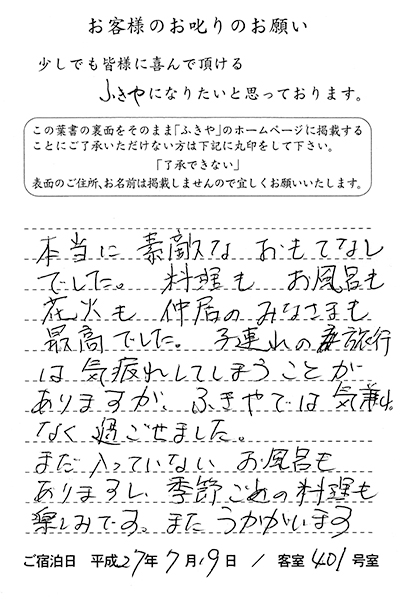 お客様のお叱りのお願い
少しでも皆様に喜んで頂ける
ふきやになりたいと思っております。
この葉書の裏面をそのまま「ふきや」のホームページに掲載する
ことにご了承いただけない方は下記に丸印をして下さい。
「了承できない」
表面のご住所、お名前は掲載しませんので宜しくお願いいたします。
本当に 素敵な おもてなし
でした。 料理も お風呂も
花火も 仲居の みなさまも
最高でした。 子連れの 旅行
は 気疲れしてしまうことが
ありますが、ふきやでは 気兼ね
なく 過ごせました。
まだ 入っていない お風呂も
ありますし、季節ごとの料理も
楽しみです。また うかがいます
ご宿泊日 平成27年7月19日 / 客室 401号室